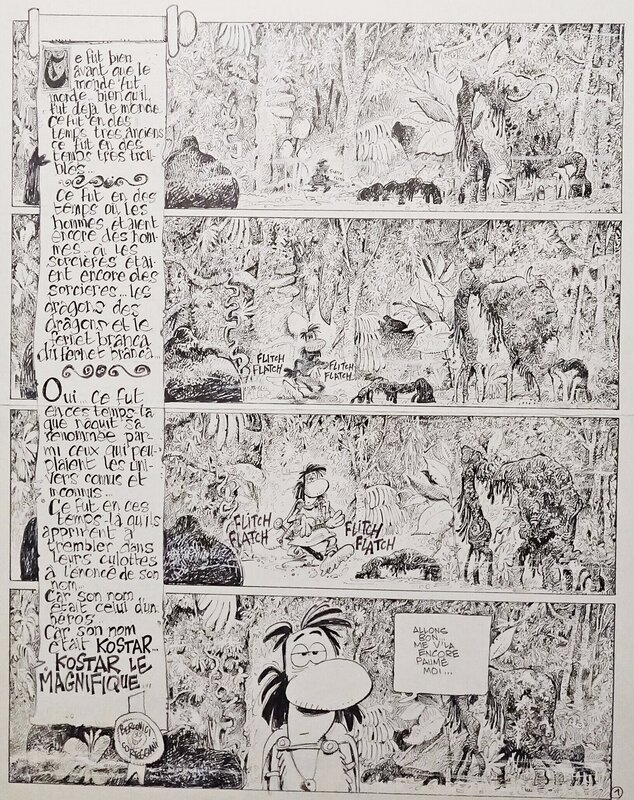 Ce fut bien
avant que le
monde fut
monde bien qu'il
fut déjà le monde.
Ce fut en des
temps très anciens
ce fut en des
temps très trou
blés...
Ce fut en des
temps où les
hommes étaient
encore des hom-
mes... et les
sorcières étai-
ent encore des
sorcières... les
dragons des
dragons et le
fernet branca
du fernet branca...
Oui... ce fut
en ces temps là
que naquit sa
renommée par-
mi ceux qui peu-
plaient les uni-
vers connus et
inconnus...
Ce fut en ces
temps-là qu'ils
apprirent à
trembler dans
leurs culottes
à l'énoncé de son
nom...
Car son nom
était celui d'un
héros.
Car son nom
était KOSTAR...
KOSTAR LE
MAGNIFIQUE...
FLITCH
FLATCH
FLITCH
FLATCH
FLITCH
FLATCH
FLITCH
FLATCH
ALLONS
BON...
ME V'LA
ENCORE
PAUMÉ
MOI...
1